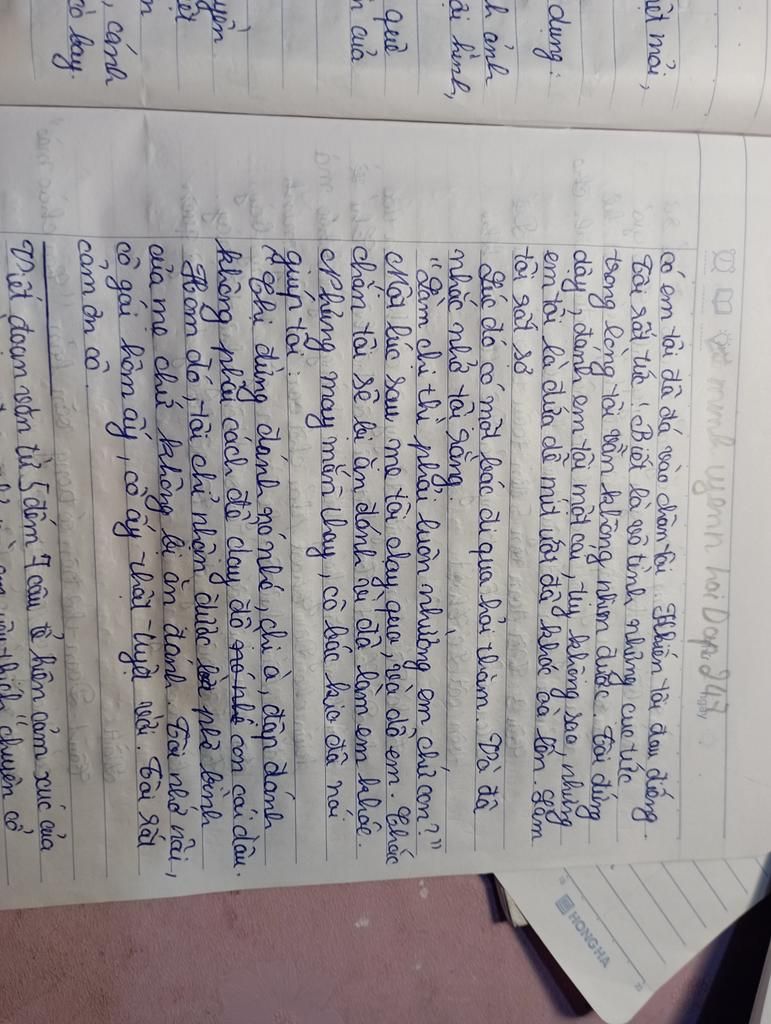 có em tôi đã đá vào chân tôi khiến tôi đau điếng.
Tôi rất tức! Biết là vô tình nhưng cục tức
trong lòng tôi vẫn không nhịn được. Tôi đứng
dậy, đánh em tôi một cái, tuy không sao nhưng
em tôi là đứa dễ mít ướt đã khóc oà lên. Làm
tôi rất sợ
Lúc đó có một bác đi qua hỏi thăm. Và đã
nhắc nhở tôi rằng:
"Làm chị thì phải luôn nhường em chứ con?"
Một lúc sau mẹ tôi chạy qua, và dỗ em. Chắc
chắn tôi sẽ bị ăn đánh vì đã làm em khóc.
Nhưng may mắn thay, cô bác kia đã nói
giúp tôi:
- Chị đừng đánh nó nhé, chị à, đập đánh
không phải cách để dạy dỗ con cái đâu.
Hôm đó, tôi chỉ nhận được lời phê bình
của mẹ chứ không bị ăn đánh. Tôi nhớ mãi,
cô gái hôm ấy, cô ấy thật tuyệt vời. Tôi rất
cảm ơn cô.
Viết đoạn văn từ 5 đến 7 câu tả hiện cảm xúc của
HONG HA
ệt mỏi,
dụng:
h ảnh
ại hình,
quê
n của
yền
cánh
cò bay.